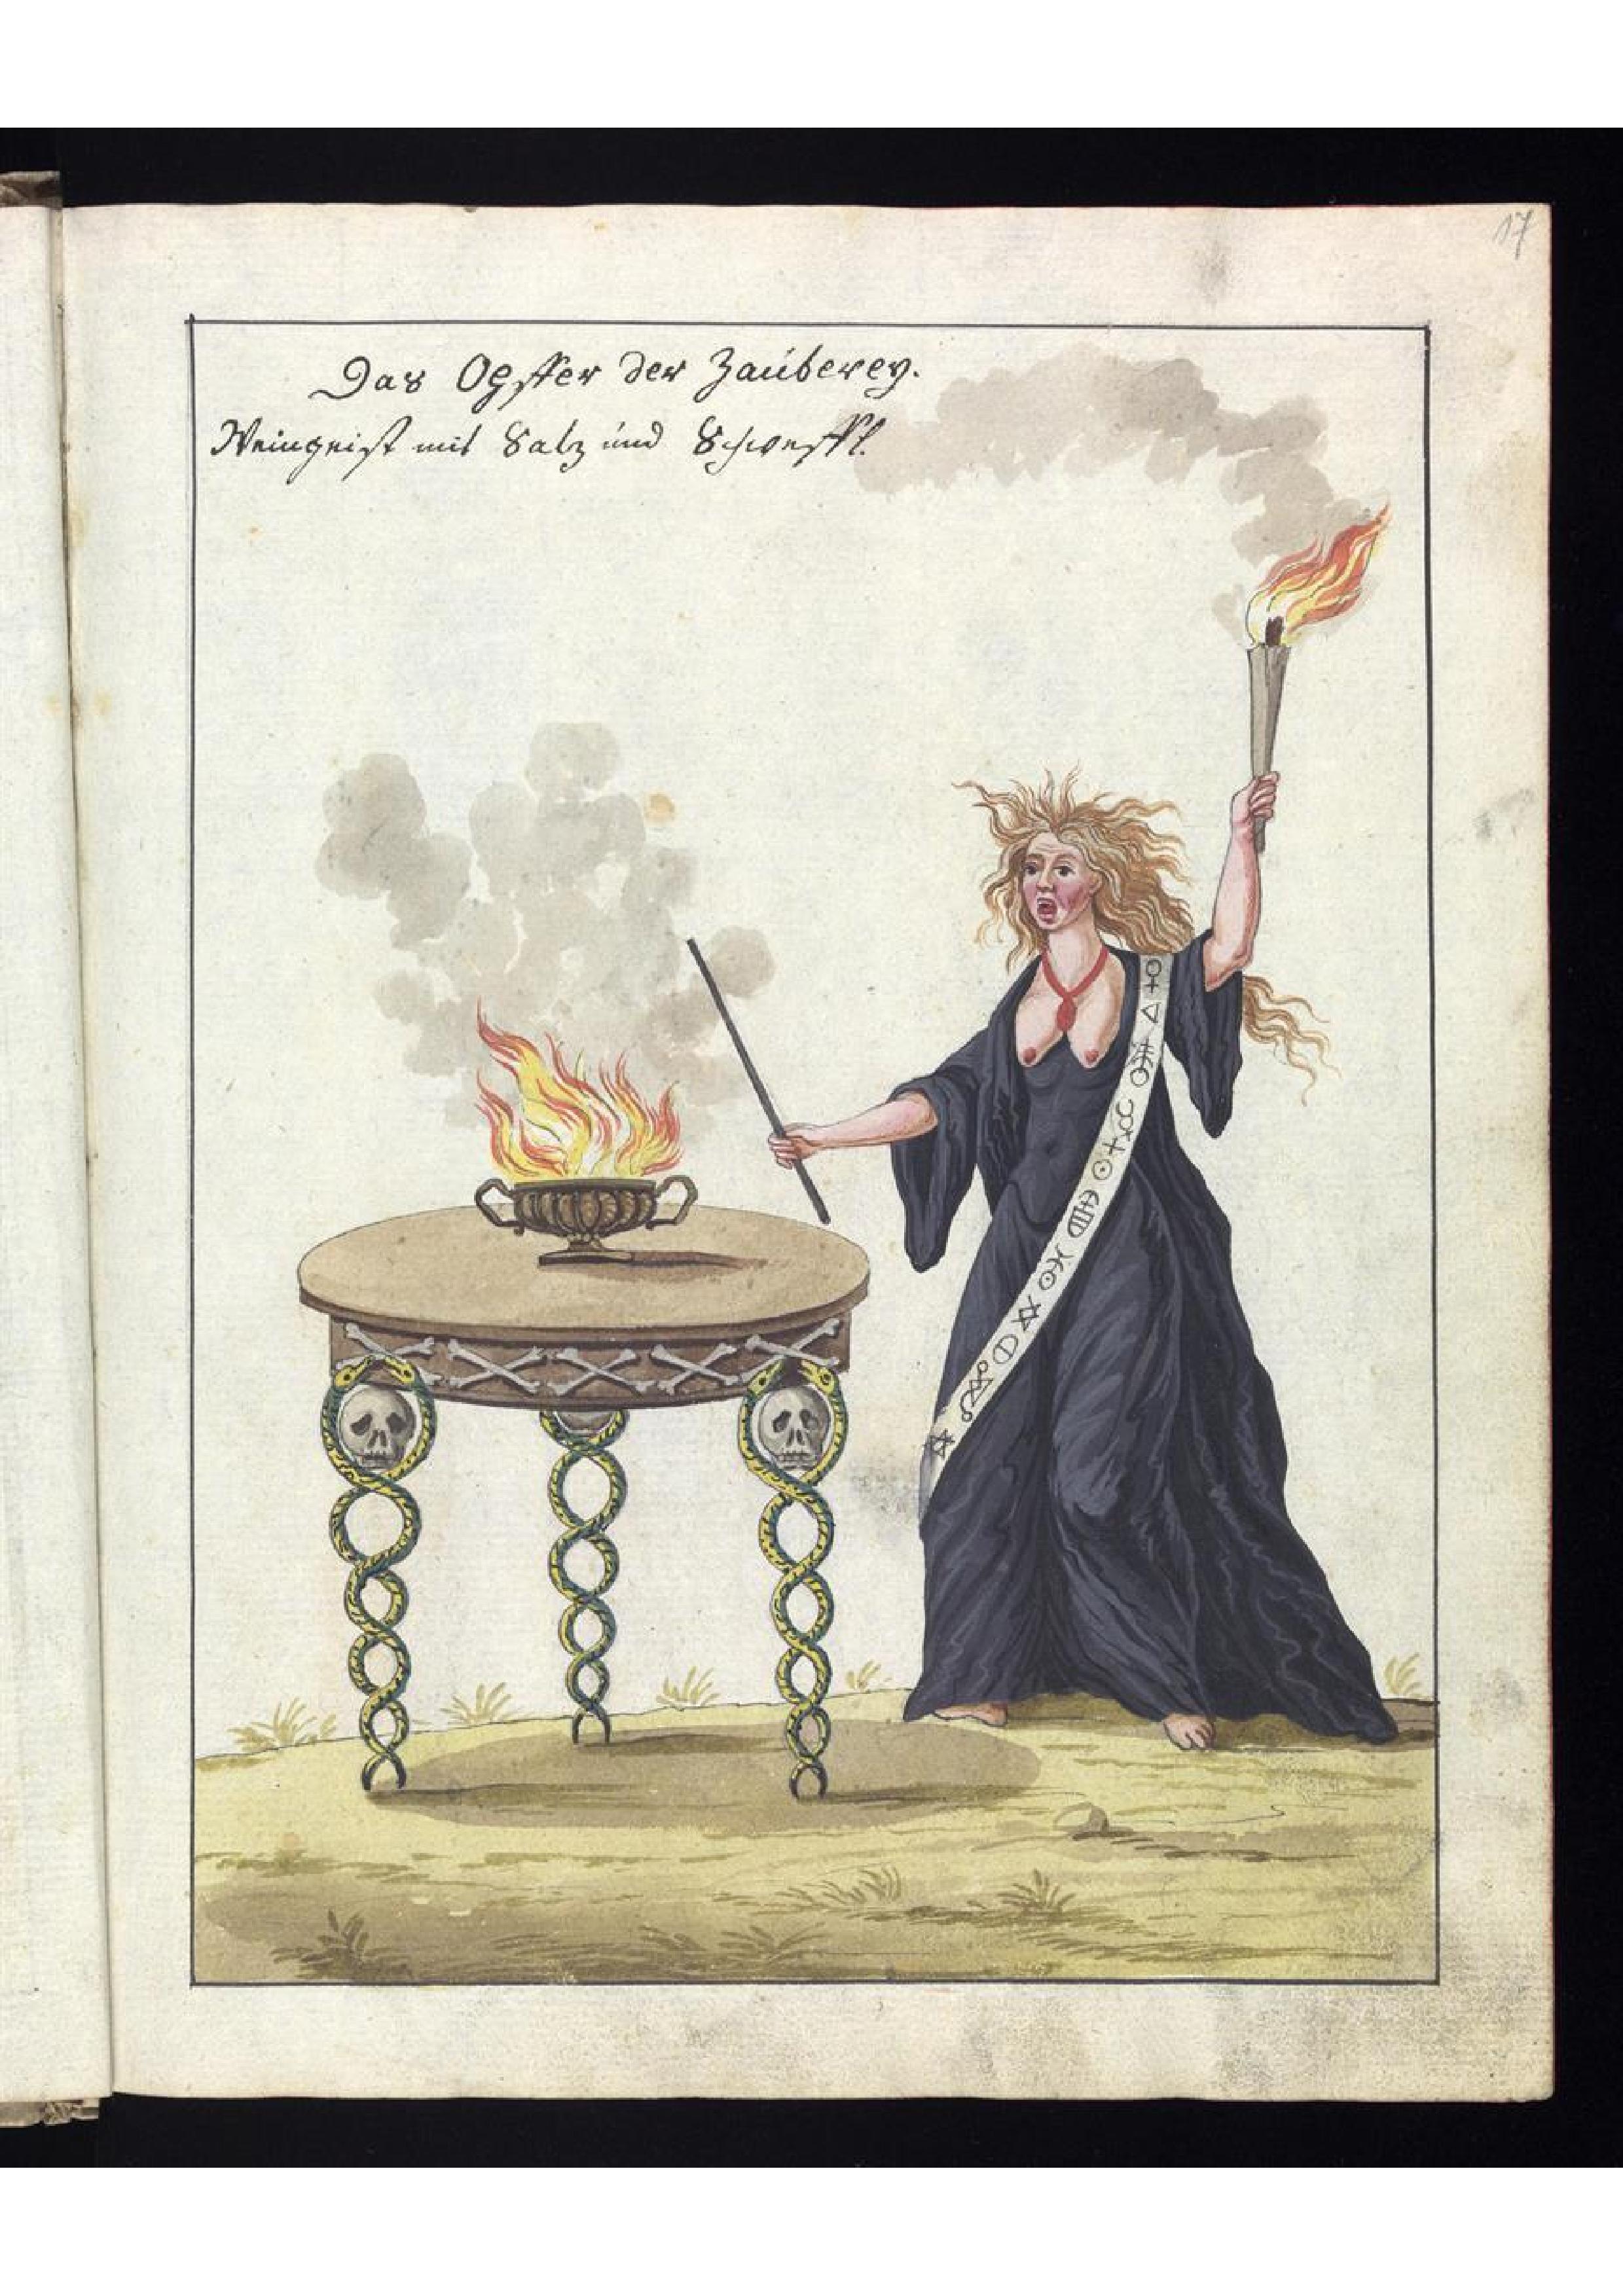 17
Das Opffer der Zauberey.
Weingeist mit Saltz und Schweffl.